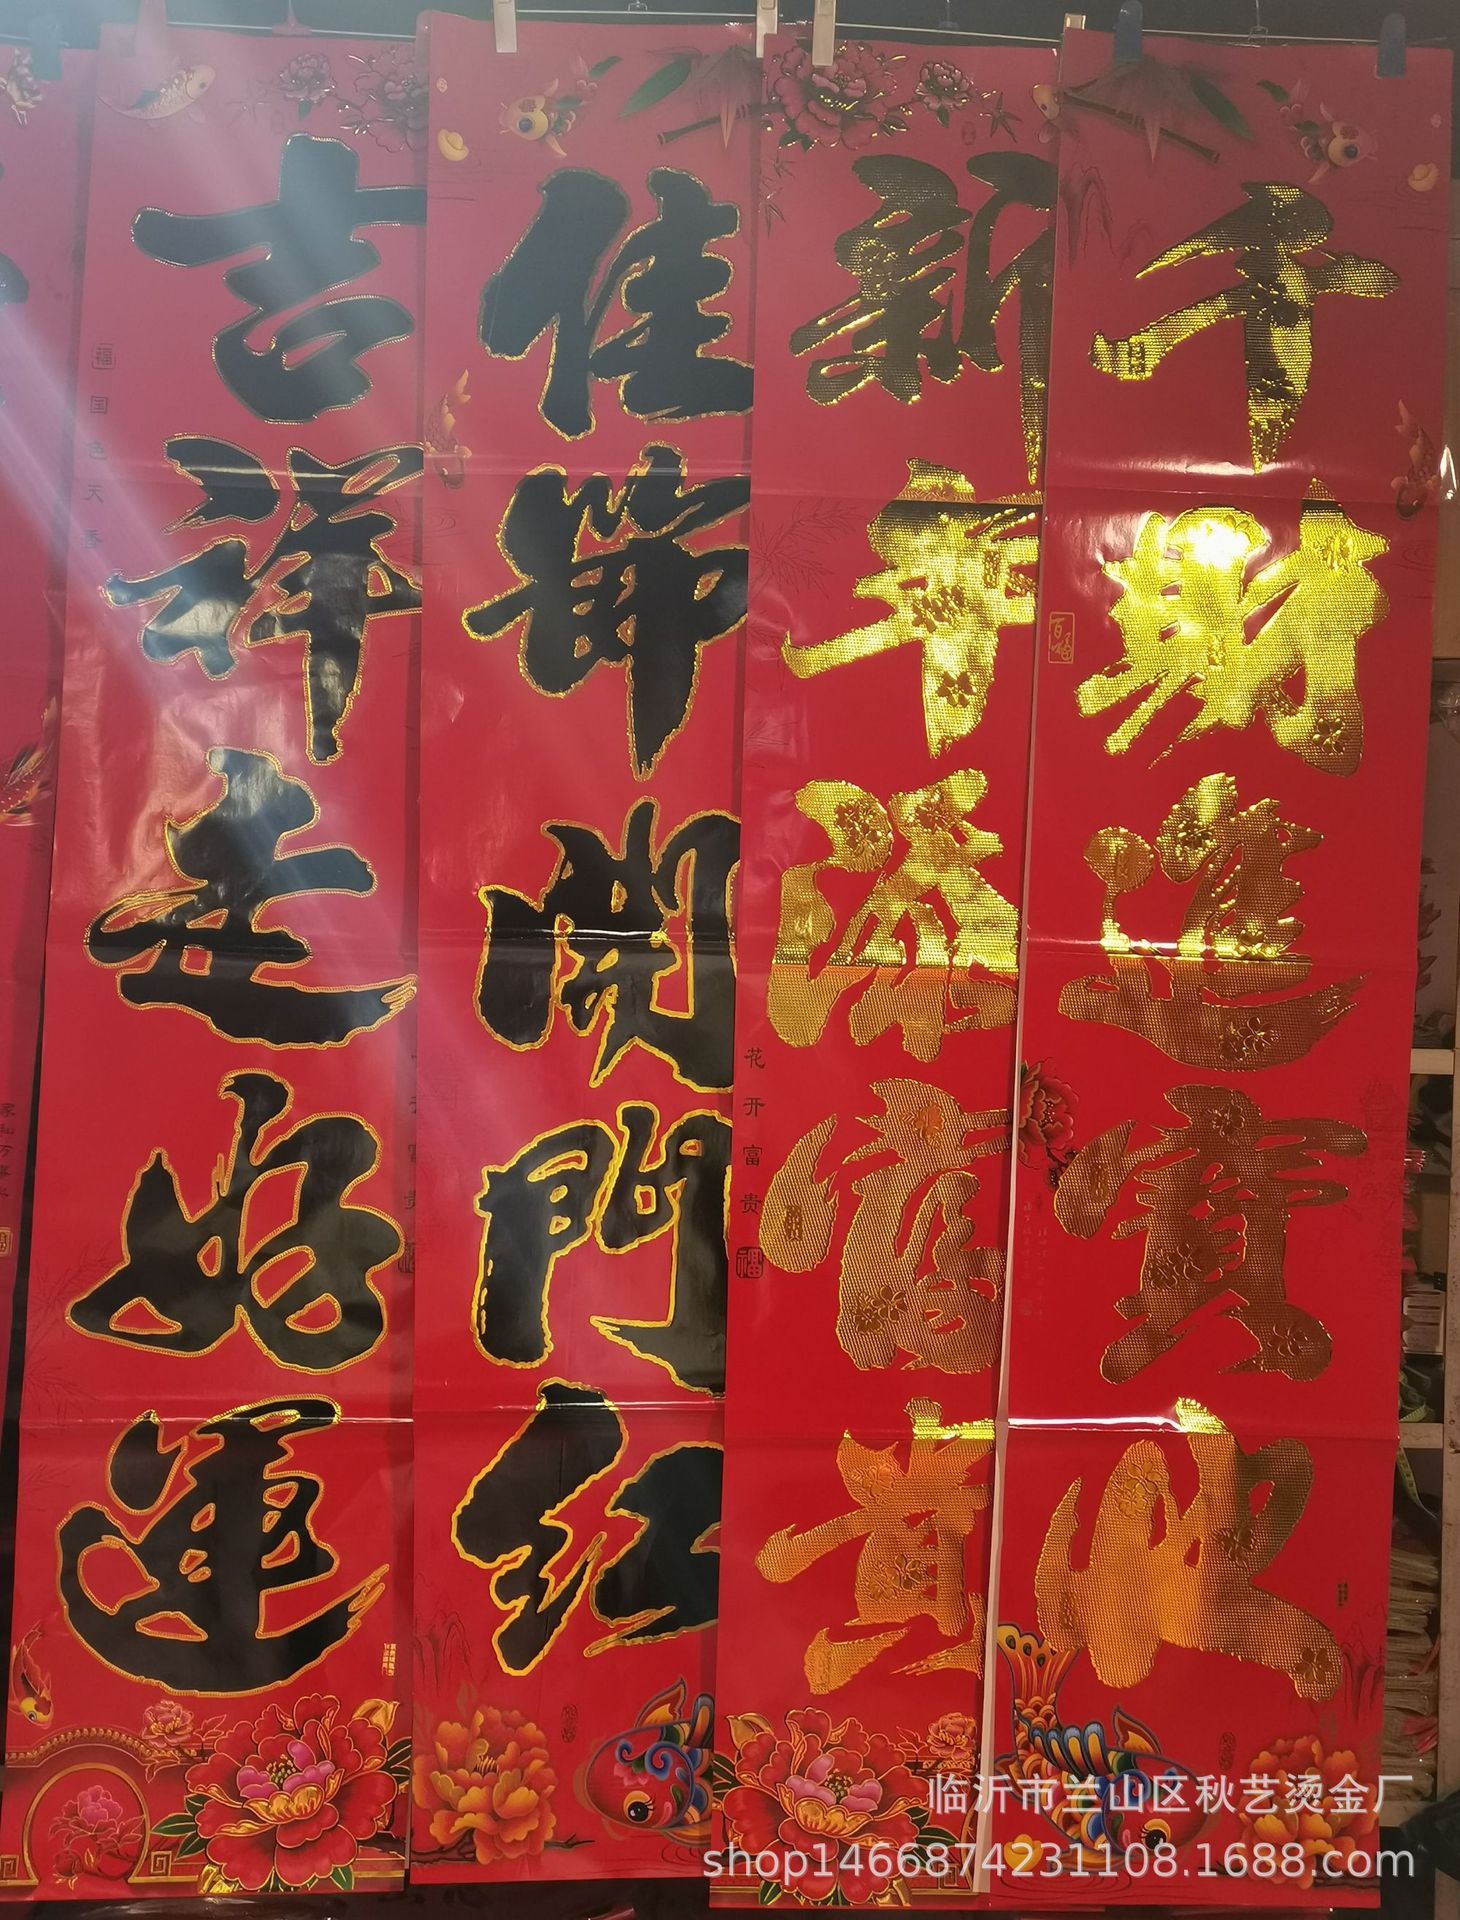 千財進寶興
新年添富貴
佳節開門红
吉祥走好運
國色天香
花开富贵
百福
福
临沂市兰山区秋艺烫金厂
shop1466874231108.1688.com